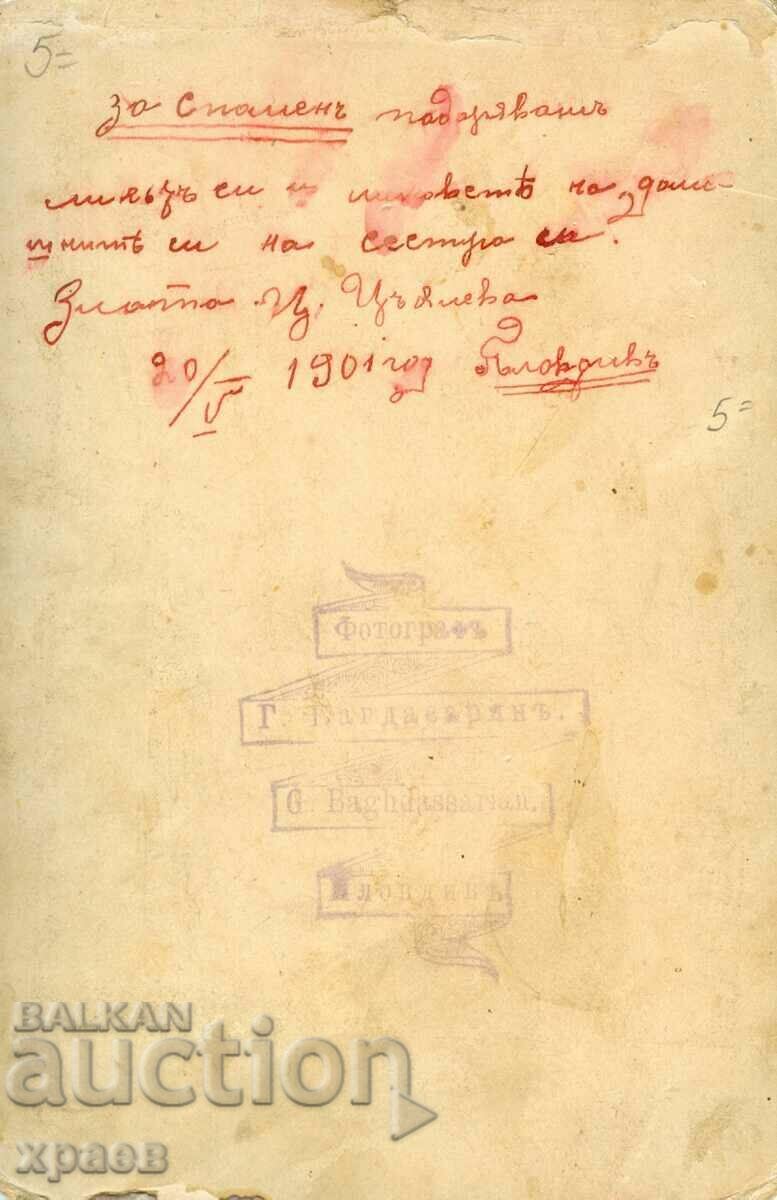 5=
за споменъ подарявамъ
ликътъ си и на дома-
шнитѣ си на сестра си.
Злата Ц.
20/V 1901 год Пловдивъ
5=
Фотографъ
Г. Багдасарянъ.
G. Baghdassarian.
Пловдивъ
BALKAN
auction
храев